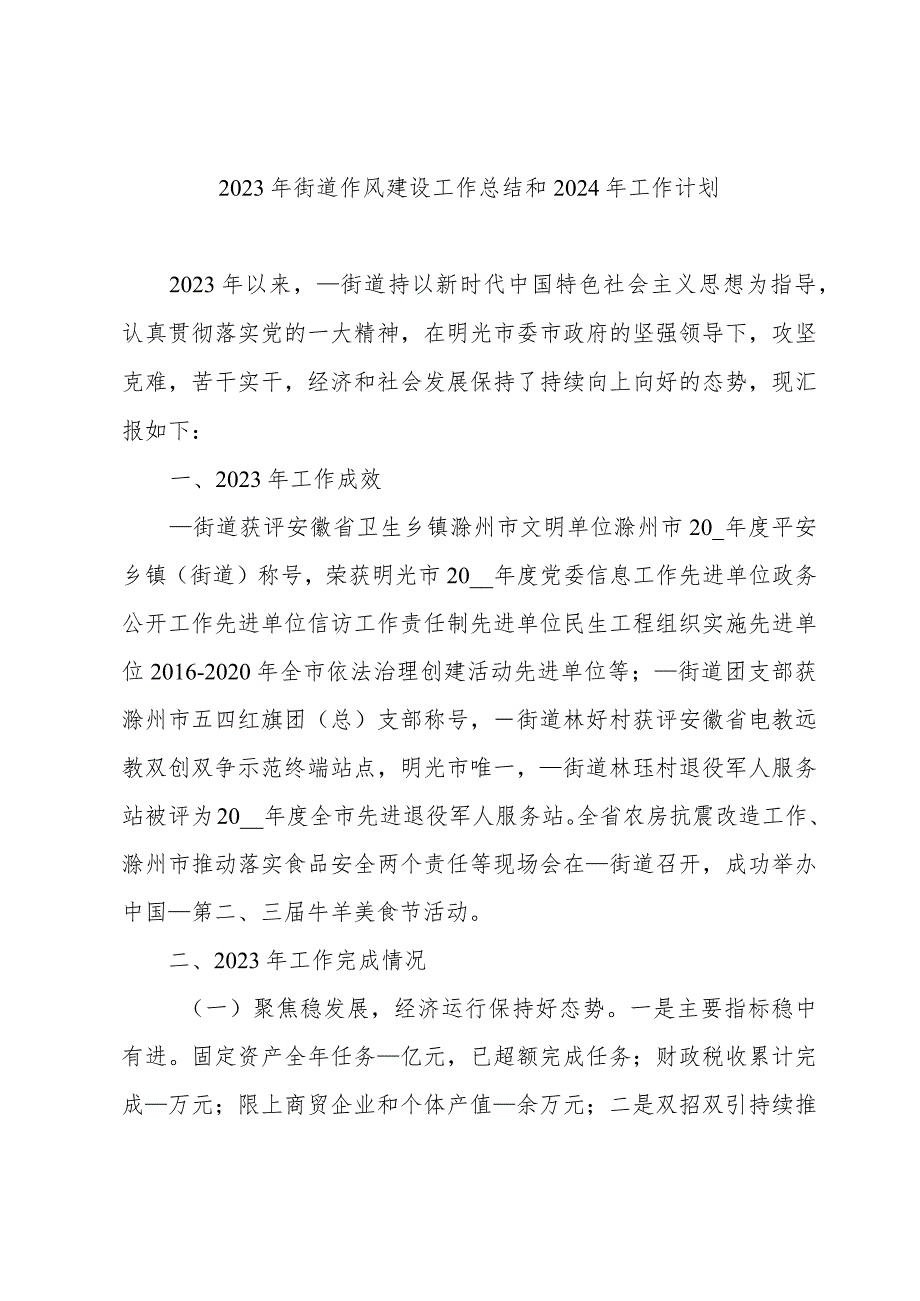 2023年街道作风建设工作总结和2024年工作计划
2023年以来，—街道持以新时代中国特色社会主义思想为指导，
认真贯彻落实党的一大精神，在明光市委市政府的坚强领导下，攻坚
克难，苦干实干，经济和社会发展保持了持续向上向好的态势，现汇
报如下：
一、2023年工作成效
—街道获评安徽省卫生乡镇滁州市文明单位滁州市20_年度平安
乡镇（街道）称号，荣获明光市20__年度党委信息工作先进单位政务
公开工作先进单位信访工作责任制先进单位民生工程组织实施先进单
位2016-2020年全市依法治理创建活动先进单位等；—街道团支部获
滁州市五四红旗团（总）支部称号，－街道林好村获评安徽省电教远
教双创双争示范终端站点，明光市唯一，—街道林珏村退役军人服务
站被评为20__年度全市先进退役军人服务站。全省农房抗震改造工作、
滁州市推动落实食品安全两个责任等现场会在—街道召开，成功举办
中国—第二、三届牛羊美食节活动。
二、2023年工作完成情况
（一）聚焦稳发展，经济运行保持好态势。一是主要指标稳中
有进。固定资产全年任务—亿元，已超额完成任务；财政税收累计完
成—万元；限上商贸企业和个体产值—余万元；二是双招双引持续推